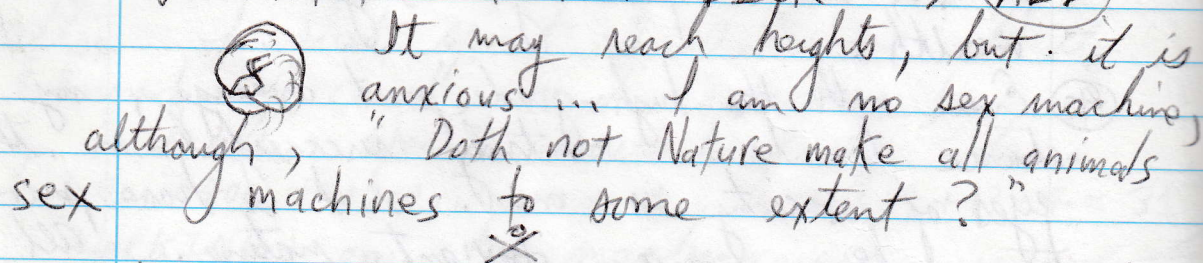 It may reach heights, but it is
anxious... I am no sex machine,
although, "Doth not Nature make all animals
sex machines to some extent?"